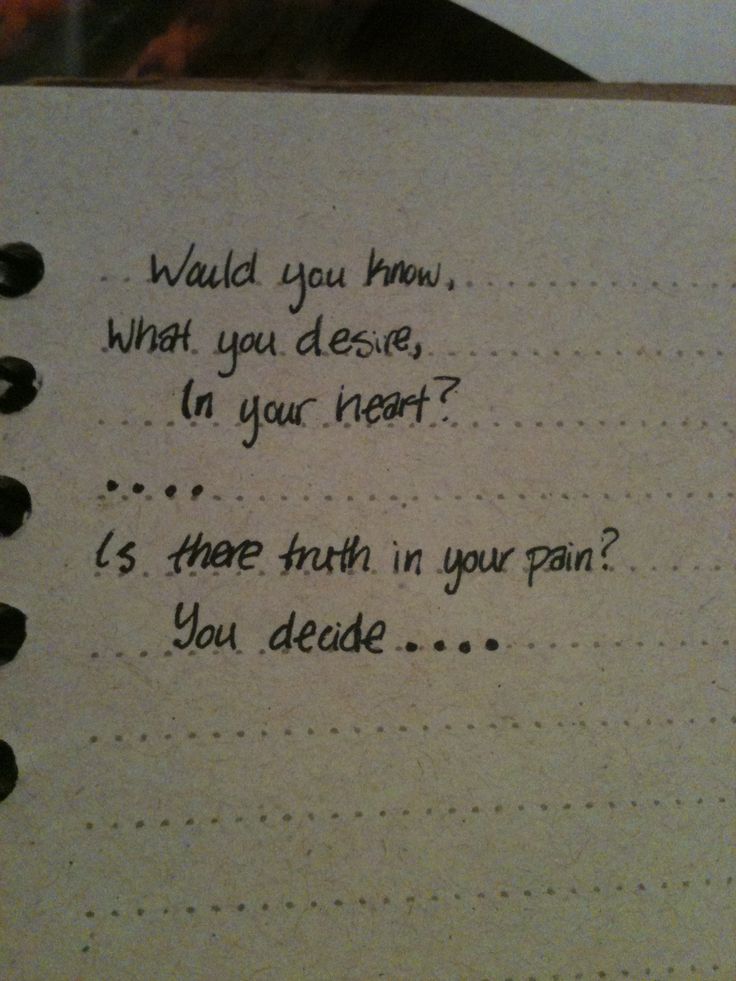 Would you know,
What you desire,
In your heart?
....
Is there truth in your pain?
You decide....